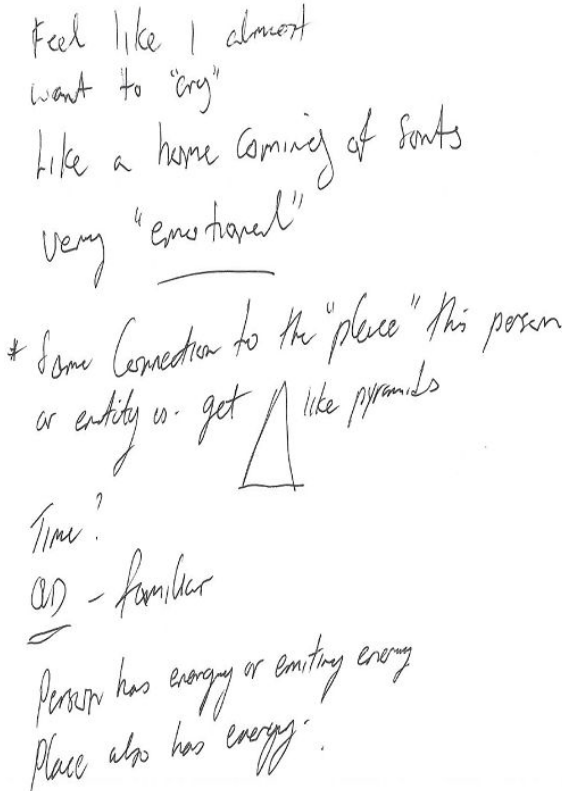 Feel like I almost
want to "cry"
Like a home coming of sorts
very "emotional"
* Some Connection to the "place" this person
or entity is. get like pyramids
Time?
OLD - familiar
Person has energy or emiting energy
Place also has energy.